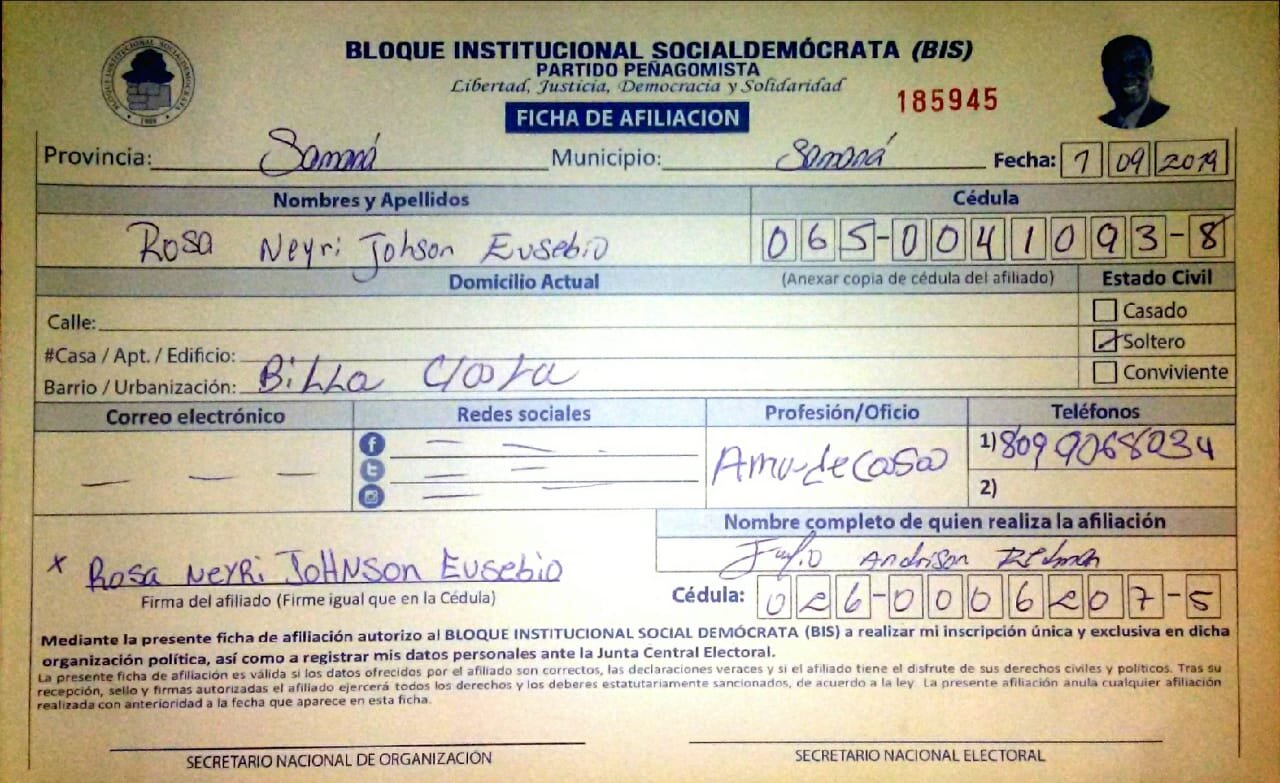 BLOQUE INSTITUCIONAL SOCIALDEMÓCRATA (BIS)
PARTIDO PEÑAGOMISTA
Libertad, Justicia, Democracia y Solidaridad
185945
FICHA DE AFILIACION
Provincia: Samaná Municipio: Samaná Fecha: 7 09 2019
Nombres y Apellidos Cédula
Rosa Neyri Johson Eusebio 065-0041093-8
Domicilio Actual (Anexar copia de cédula del afiliado) Estado Civil
Calle: Casado
#Casa / Apt. / Edificio: Soltero
Barrio / Urbanización: Billa Conviviente
Correo electrónico Redes sociales Profesión/Oficio Teléfonos
Ama de casa 1) 809 9068034
2)
Nombre completo de quien realiza la afiliación
Julio Andrison
x Rosa Neyri Johnson Eusebio
Firma del afiliado (Firme igual que en la Cédula) Cédula: 026-0006207-5
Mediante la presente ficha de afiliación autorizo al BLOQUE INSTITUCIONAL SOCIAL DEMÓCRATA (BIS) a realizar mi inscripción única y exclusiva en dicha
organización política, así como a registrar mis datos personales ante la Junta Central Electoral.
La presente ficha de afiliación es válida si los datos ofrecidos por el afiliado son correctos, las declaraciones veraces y si el afiliado tiene el disfrute de sus derechos civiles y políticos. Tras su
recepción, sello y firmas autorizadas el afiliado ejercerá todos los derechos y los deberes estatutariamente sancionados, de acuerdo a la ley. La presente afiliación anula cualquier afiliación
realizada con anterioridad a la fecha que aparece en esta ficha.
SECRETARIO NACIONAL DE ORGANIZACIÓN SECRETARIO NACIONAL ELECTORAL